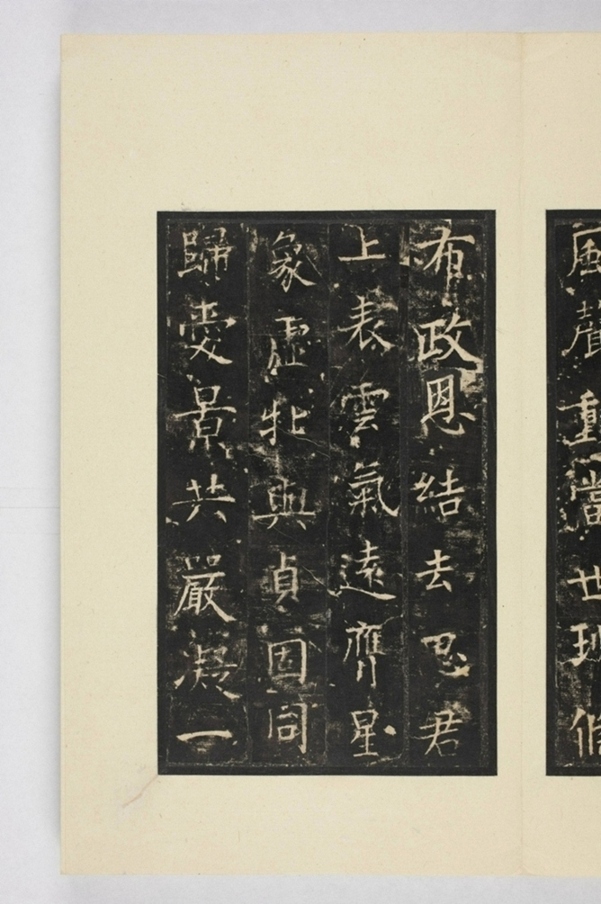 風聲重當世班條
布政恩結去思君
上表雲氣遠齊星
象虛牝與貞因同
歸愛景共嚴凝一